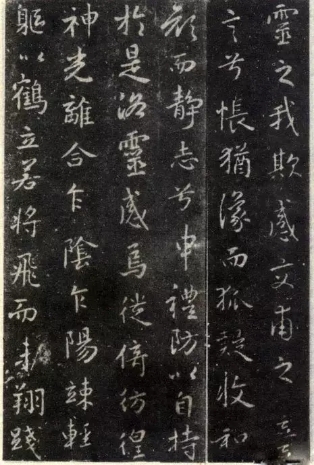 靈之我欺感交甫之棄
言兮悵猶豫而狐疑收和
顏而静志兮申禮防以自持
於是洛靈感焉徙倚彷徨
神光離合乍陰乍陽竦輕
軀以鶴立若將飛而未翔踐